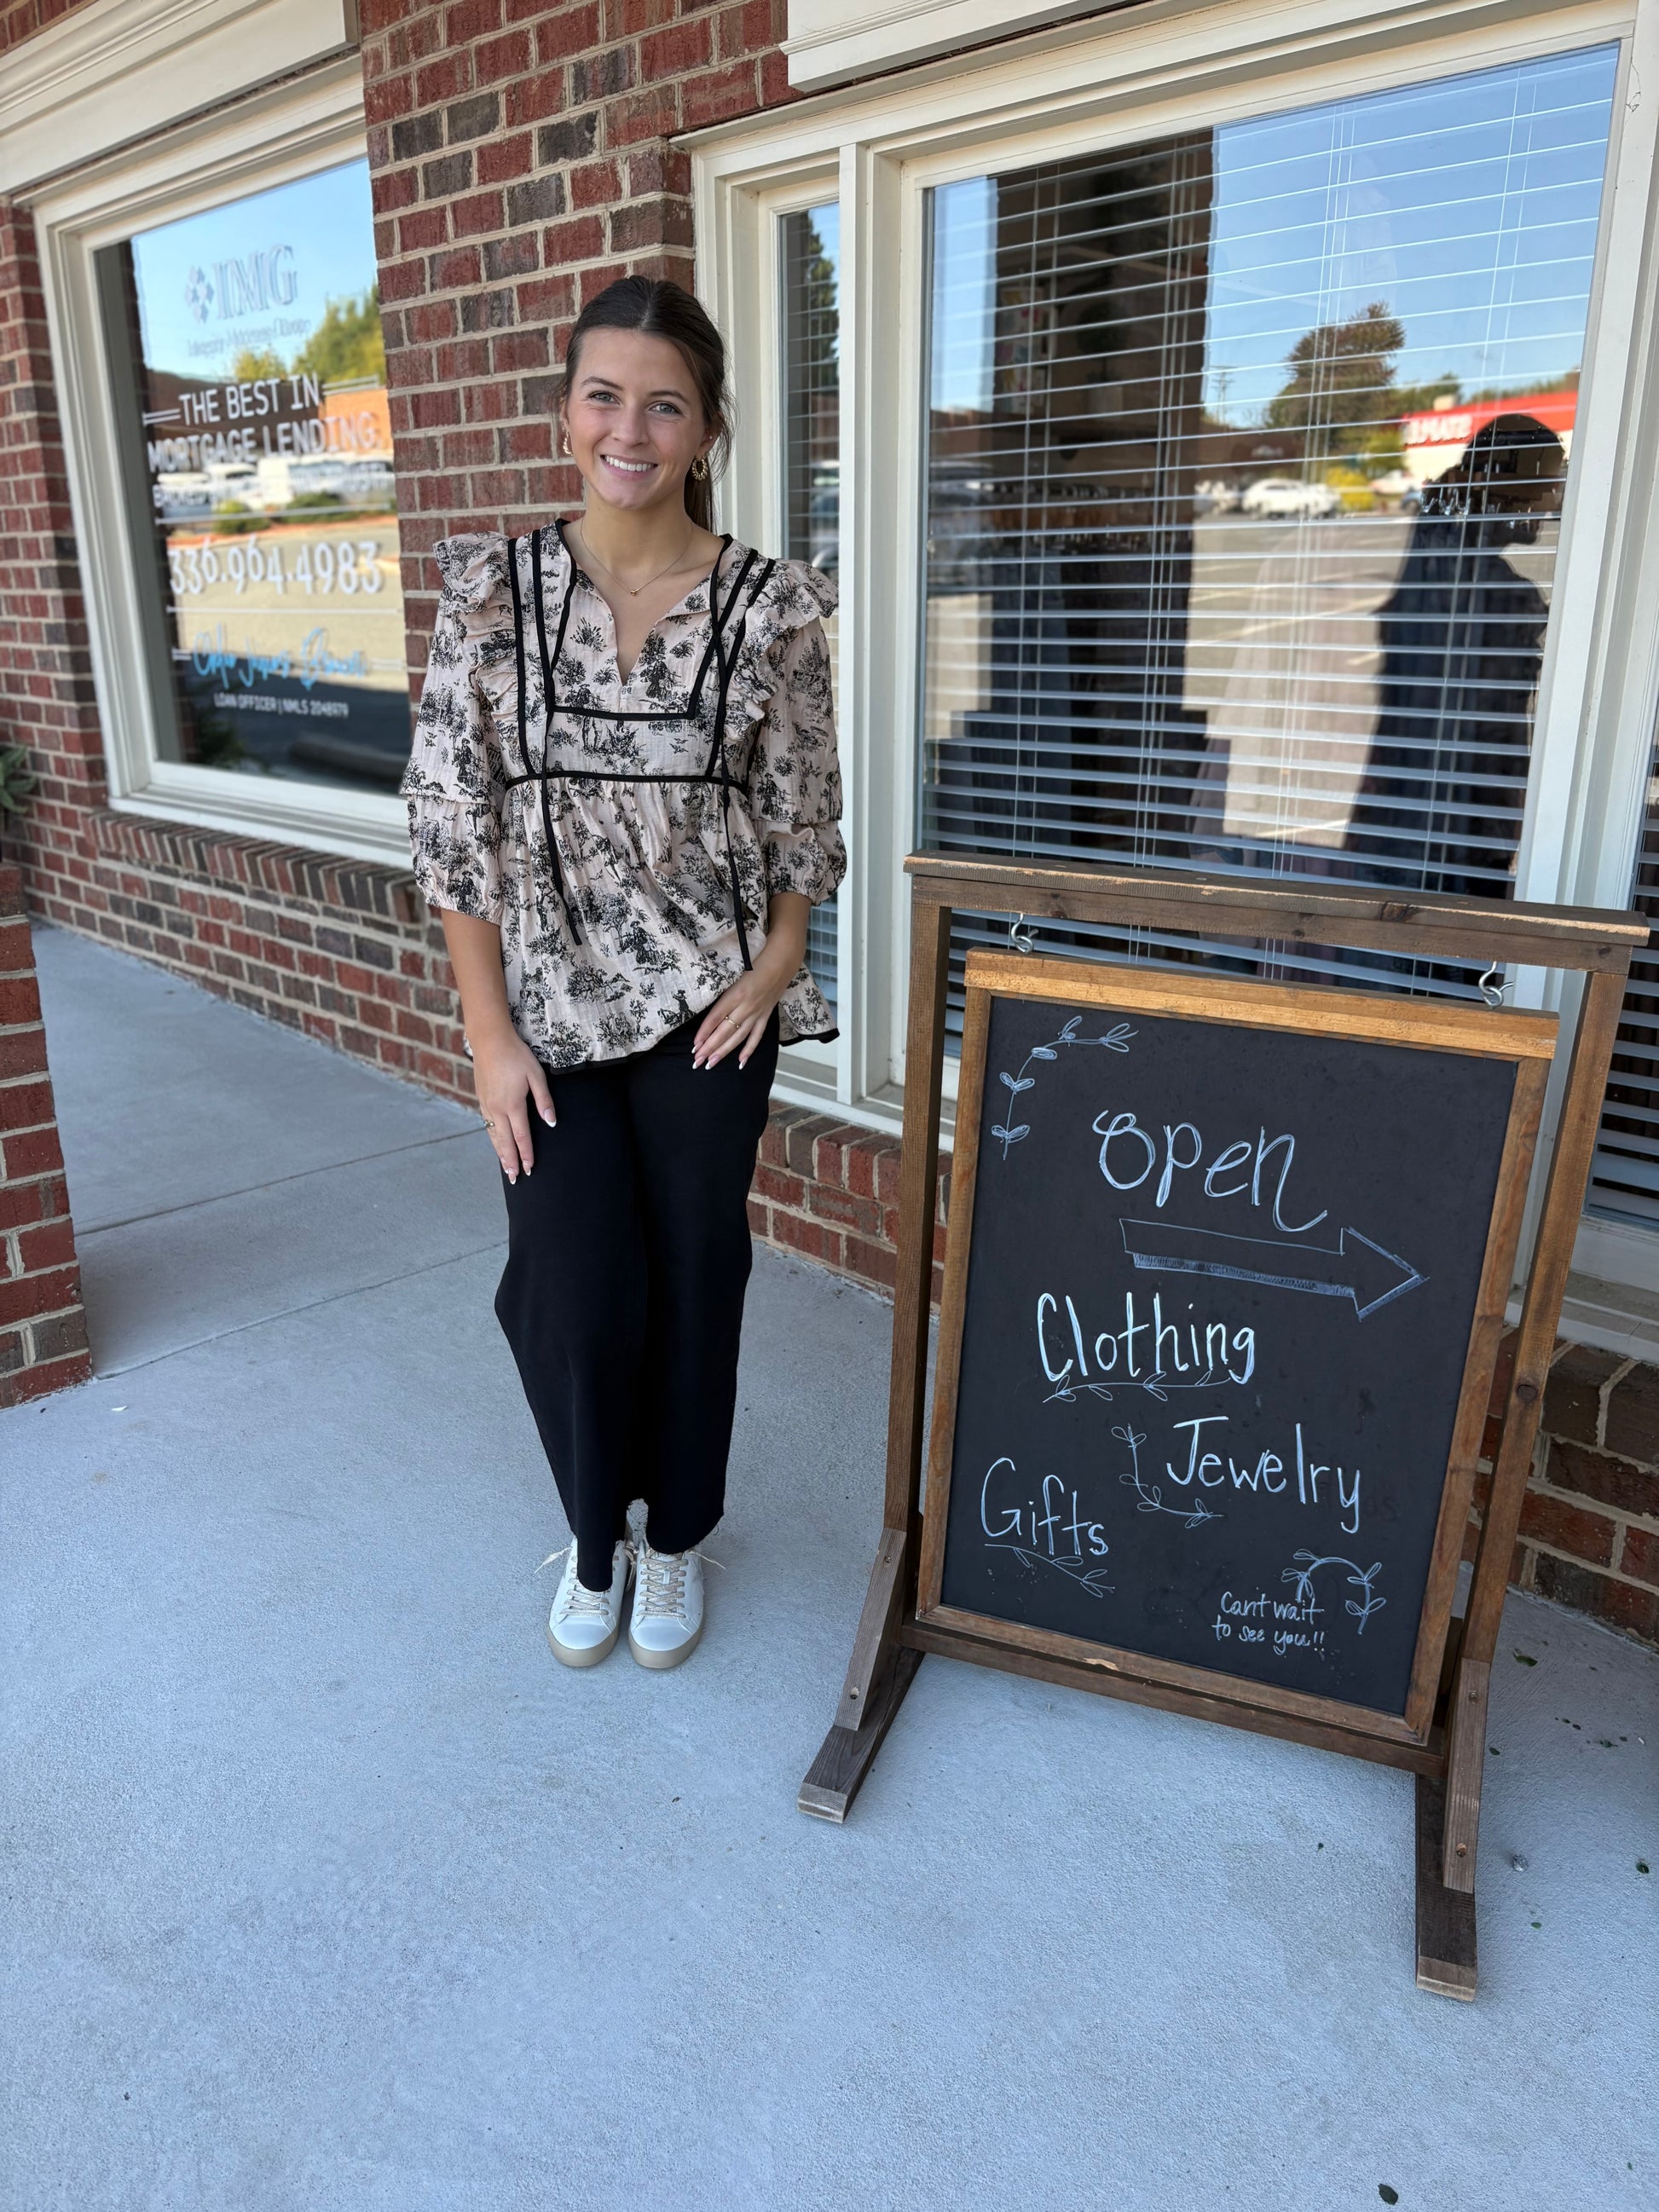 IMG
THE BEST IN
MORTGAGE LENDING.
336.964.4983
LOAN OFFICER | NMLS 2048979
Open
Clothing
Jewelry
Gifts
Can't wait
to see you!!